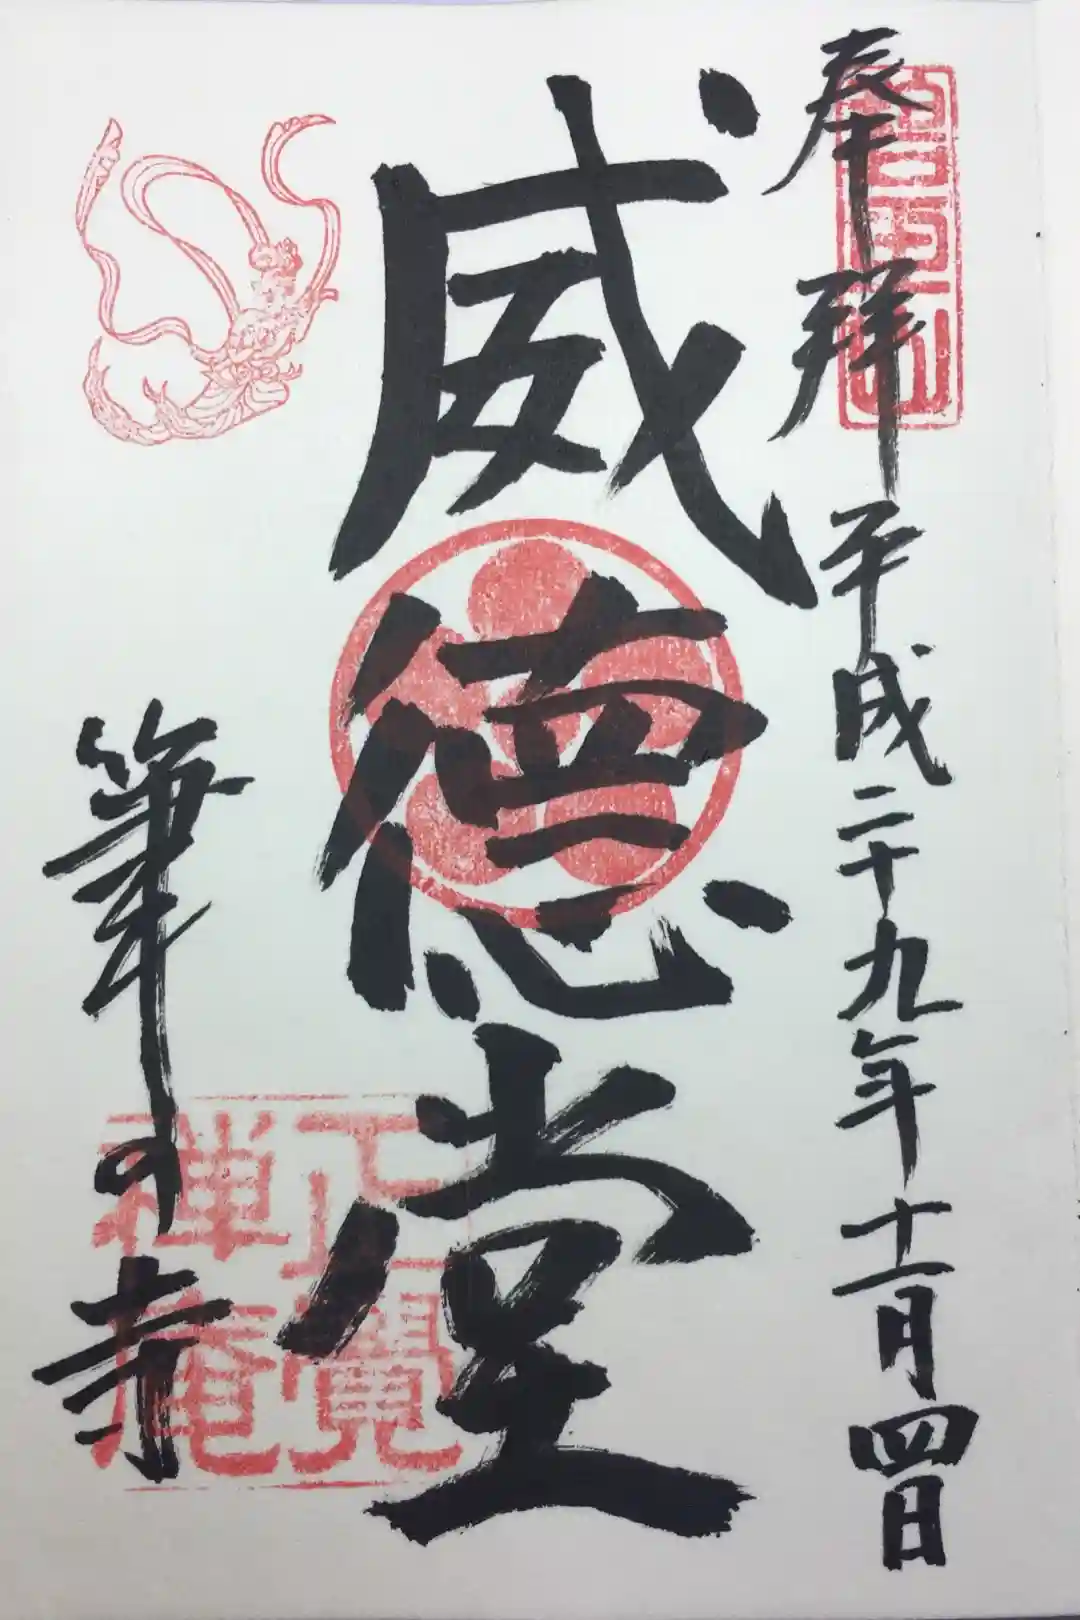 奉拝 平成二十九年十二月四日
威徳堂
筆の寺
吉田山
正覺禅庵